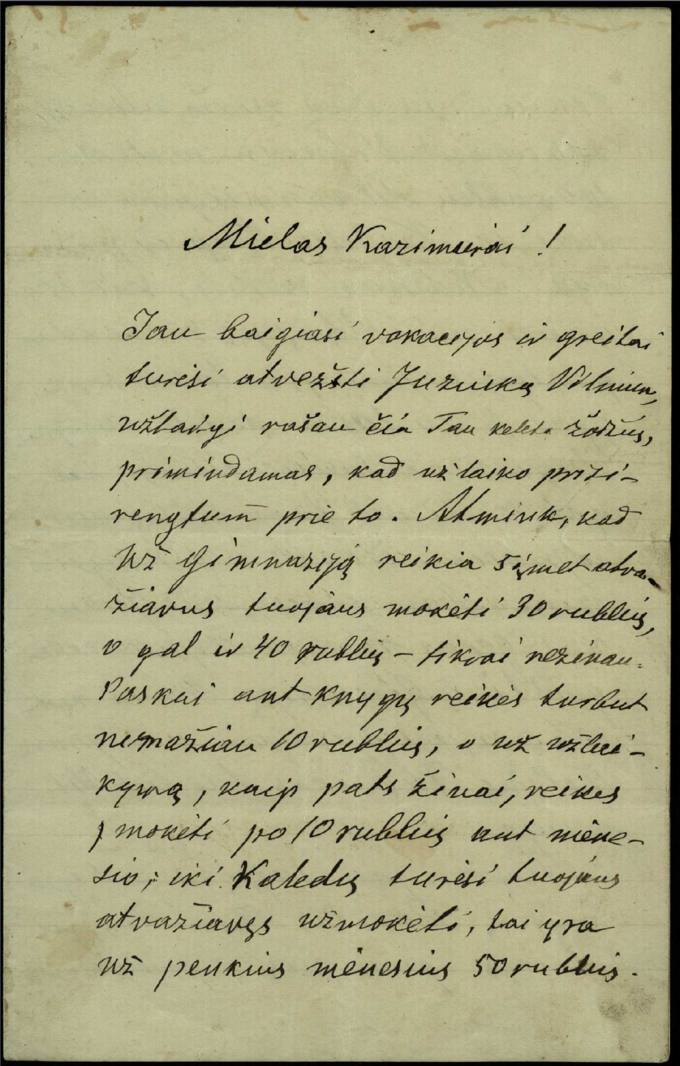 Mielas Kazimierai!
Jau baigiasi vakacijos ir greitai
turėsi atvežsti Juziuką Vilniun,
užtaigi rašau čia Tau keleta žodžių,
primindamas, kad už laiko prisi-
rengtum prie to. Atmink, kad
už Gimnaziją reikia šįmet atva-
žiavus tuojaus mokėti 30 rublių,
o gal ir 40 rublių – tikrai nežinau.
Paskui ant knygų reikės turbut
nemažiau 10 rublių, o už užlai-
kymą, kaip pats žinai, reikės
mokėti po 10 rublių ant mėne-
sio; iki Kalėdų turėsi tuojaus
atvažiavęs užmokėti, tai yra
už penkius mėnesius 50 rublių.